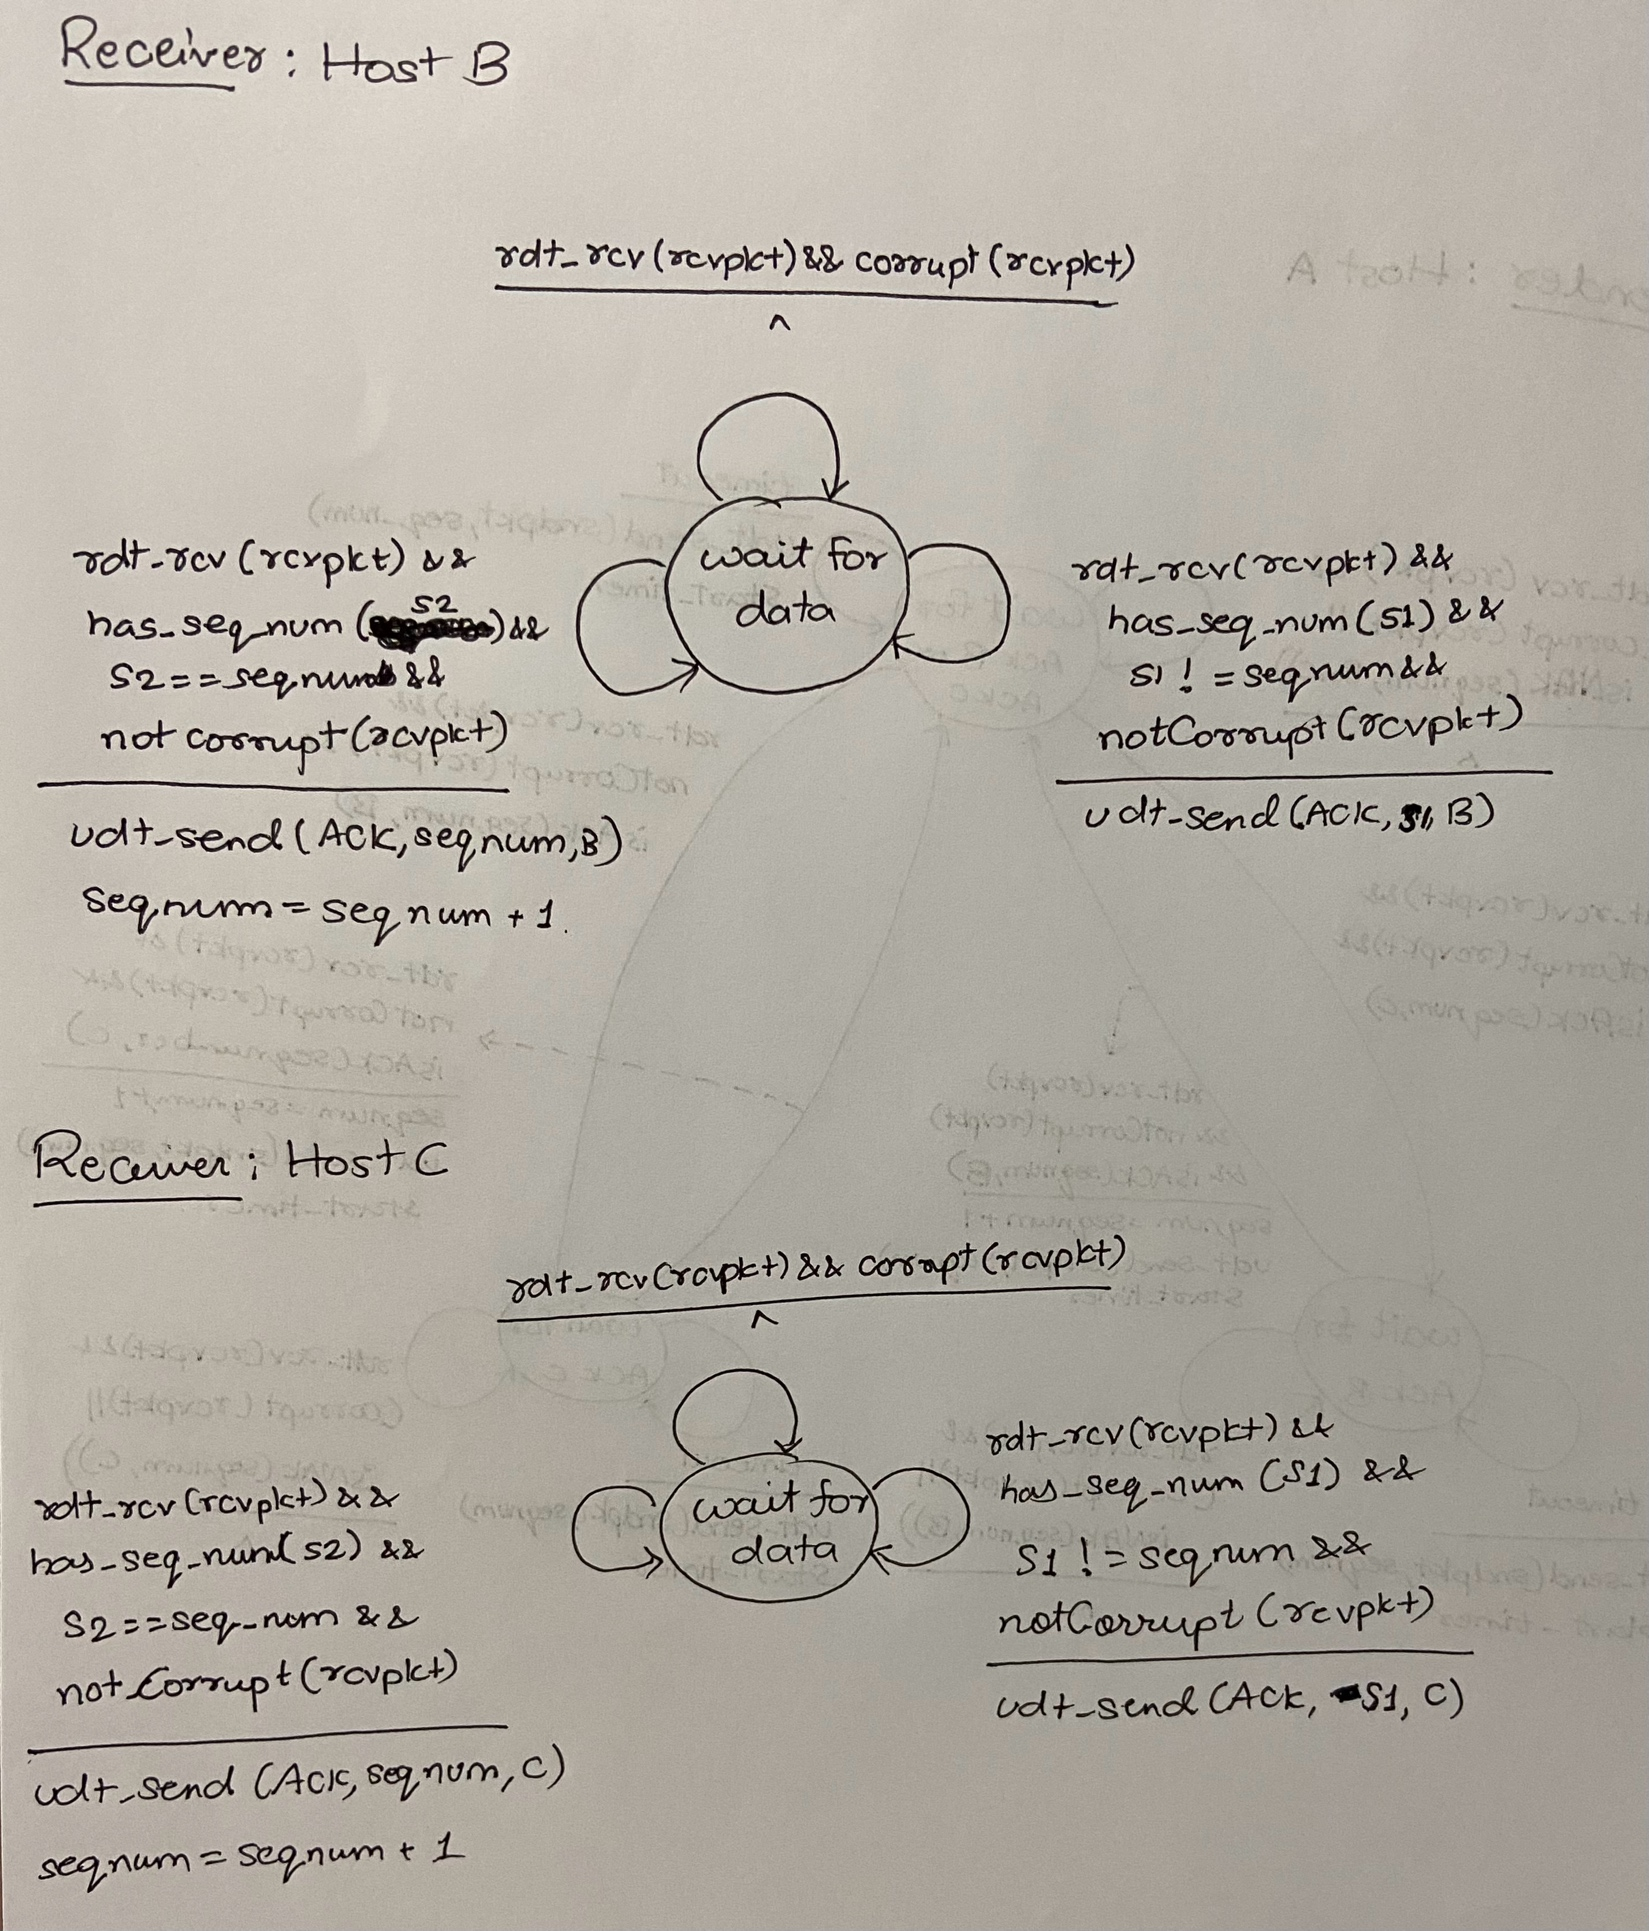 Receiver : Host B
rdt_rcv (rcvpkt) && corrupt (rcvpkt)
^
wait for
data
rdt_rcv (rcvpkt) &&
has_seq_num (S2) &&
S2==seqnum &&
not corrupt (rcvpkt)
udt_send (ACK, seqnum, B)
seqnum = seqnum + 1.
rdt_rcv (rcvpkt) &&
has_seq_num (S1) &&
S1 != seqnum &&
notCorrupt (rcvpkt)
udt_send (ACK, S1, B)
Receiver : Host C
rdt_rcv (rcvpkt) && corrupt (rcvpkt)
^
wait for
data
rdt_rcv (rcvpkt) &&
has_seq_num (S2) &&
S2==seq_num &&
not_Corrupt (rcvpkt)
udt_send (ACK, seqnum, C)
seqnum = seqnum + 1
rdt_rcv (rcvpkt) &&
has_seq_num (S1) &&
S1 != seqnum &&
notCorrupt (rcvpkt)
udt_send (ACK, S1, C)